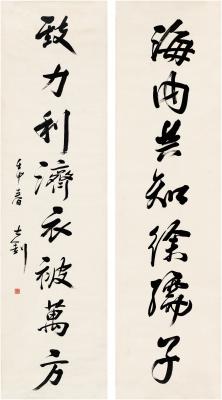 海内共知徐孺子
致力利濟衣被萬方
壬申春 士釗